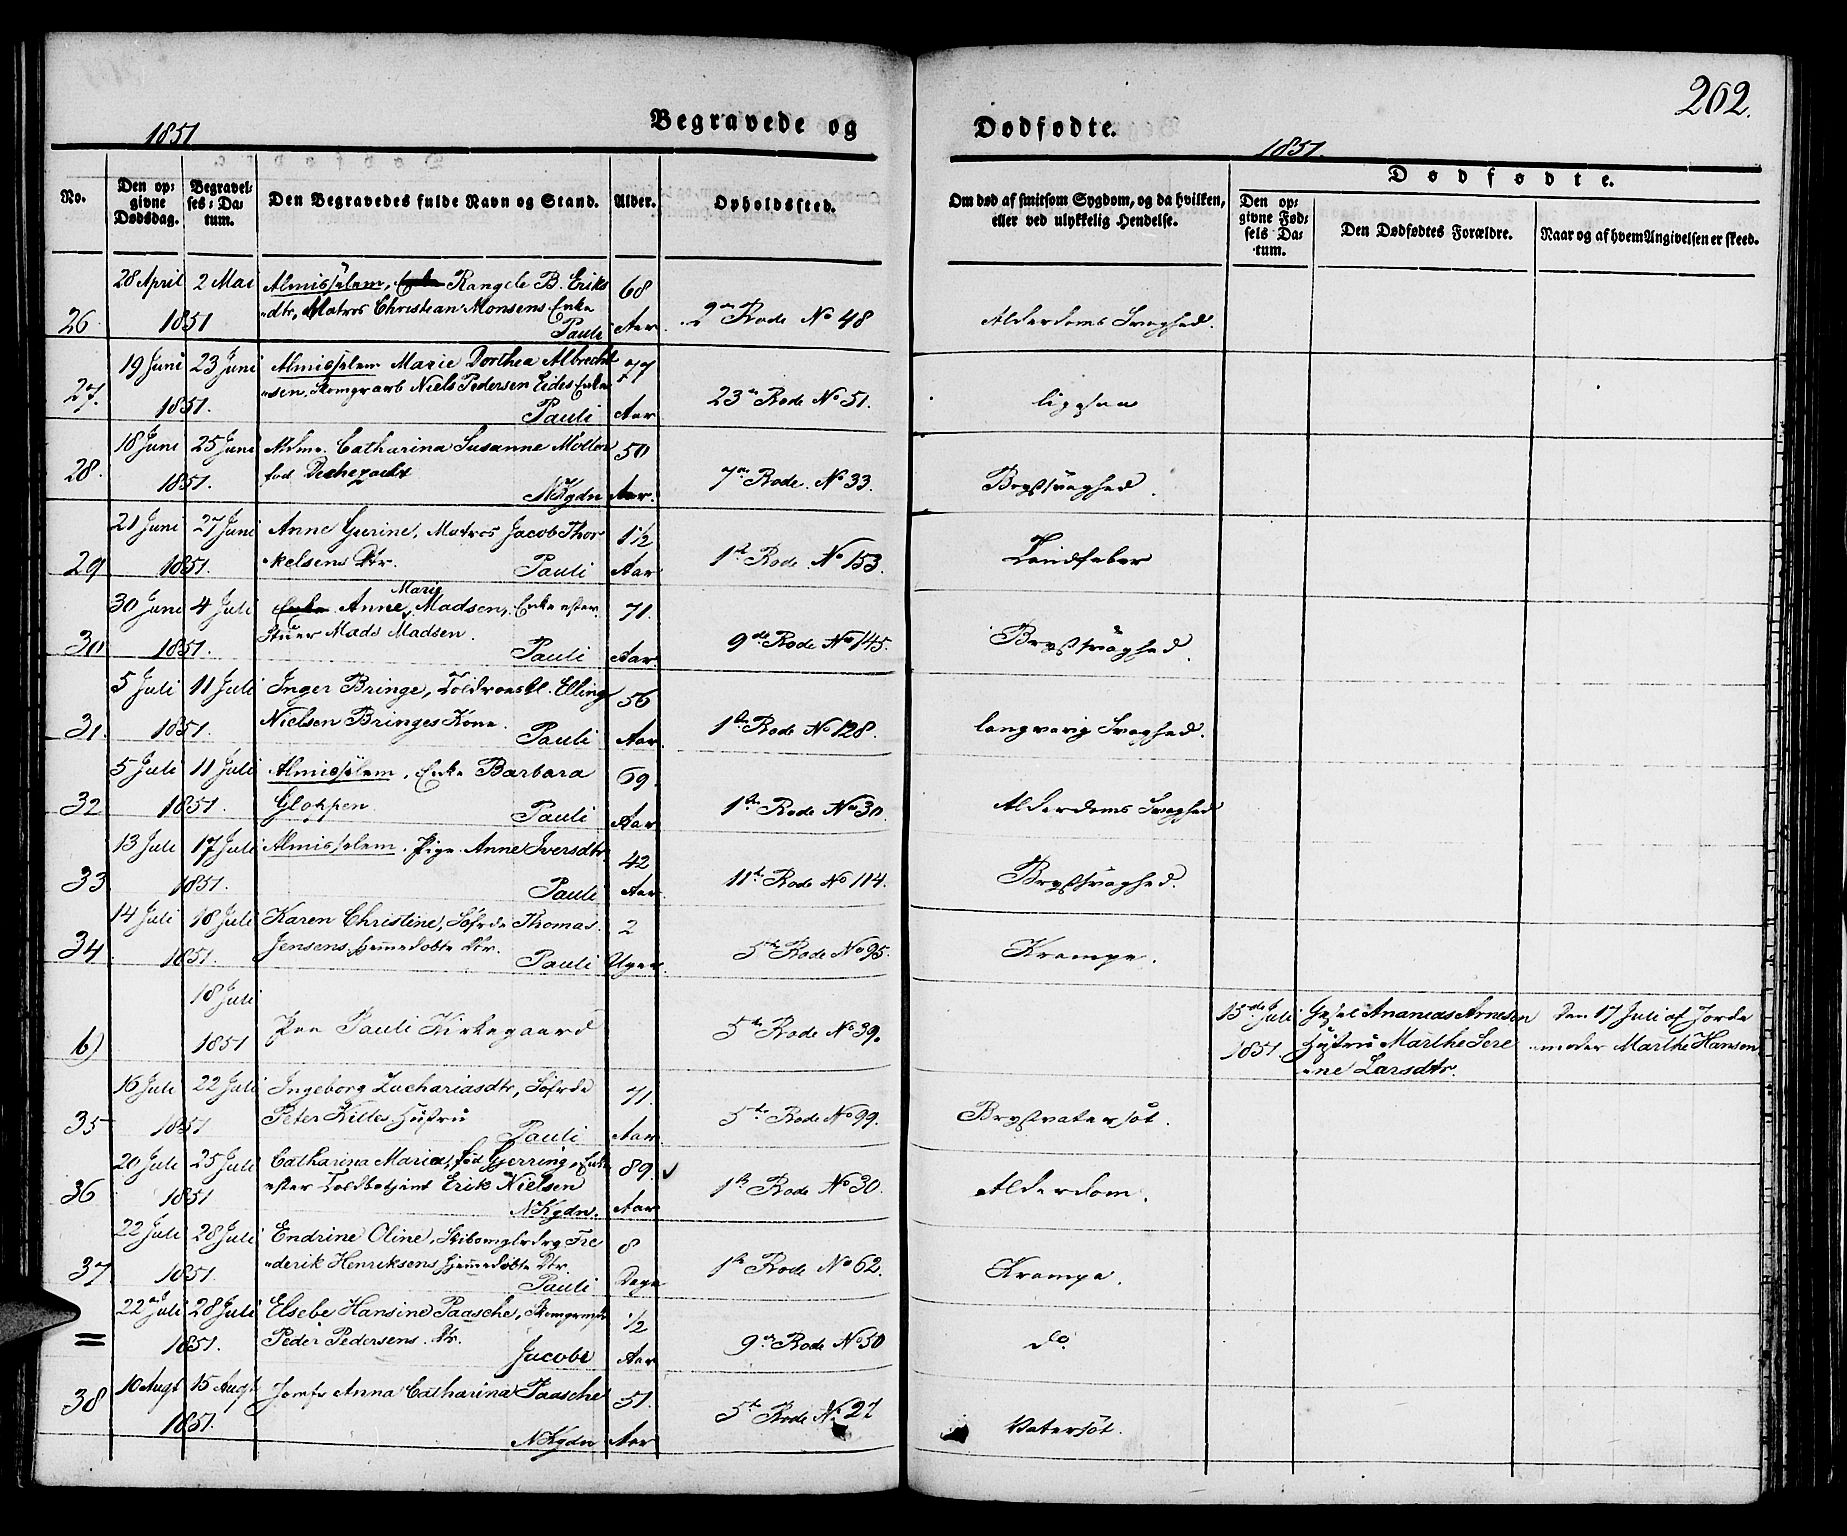 202.
Begravede og Dødfødte.
1851
1851.
No.
Den op=
givne
Dødsdag.
Begravel=
ses=Da=
tum.
Den Begravedes fulde Navn og Stand.
Alder.
Opholdssted.
Om død af smitsom Sygdom, og da hvilken,
eller ved ulykkelig Hendelse.
Dødfødte.
Den op=
givne Fød=
sels Da=
tum.
Den Dødfødtes Forældre.
Naar og af hvem Angivelsen er skeed.
28 April 2 Mai Almisselem, Enke Rangele B. Eriks 68
26. 1851 dtr, Matros Christian Monsens Enke
Pauli Aar 2den Rode No 48 Alderdoms Svaghed.
19 Juni 23 Juni Almisselem Marie Dorthea Albrecht 77
27. 1851. sen, Niels Pedersen Eides Enke
Pauli Aar 23de Rode No 51. ligesaa
18 Juni 25 Juni Catharina Susanne Møller 50
28. 1851. fød
NKgdn Aar. 7de Rode. No 33. Brystsvaghed.
21 Juni 27 Juni Anne Gurine, Matros Jacob Thor 1½
29 1851. kelsens Dtr. Pauli Aar 1ste Rode No 153. Tandfeber
30 Juni 4 Juli Enke Anne Marie Madsen, Enke efter 71.
30 1851. Mads Madsen. Pauli Aar 9de Rode No 145. Brystsvaghed.
5 Juli 11 Juli Inger Bringe, Elling 56
31. 1851. Nielsen Bringes Kone. Pauli Aar 1ste Rode No 128. langvarig Svaghed.
5 Juli 11 Juli Almisselem, Enke Barbara 69.
32 1851. Gloppen. Pauli Aar 1ste Rode No 30. Alderdoms Svaghed
13 Juli 17 Juli Almisselem. Pige Anne Iversdtr. 42
33 1851. Pauli Aar 11te Rode No 114. Brystsvaghed.
14 Juli 18 Juli Karen Christine, Søfrde Thomas 2
34 1851. Jensens hjemmedøbte Dtr. Pauli Uger 5te Rode No 95. Krampe.
18 Juli
6) 1851 Paa Pauli Kirkegaard 5te Rode No 39.
15de Juli Ananias Arnesen Den 17 Juli af Jorde
1851 Hustru Marthe Sere moder Marthe Hansen
ne Larsdtr.
16 Juli 22 Juli Ingeborg Zachariasdtr, Søfrde 71.
35 1851 Peter Killes Hustru Pauli Aar 5te Rode No 99. Brystvatersot.
20 Juli 25 Juli Catharina Maria, fød Gjerring, Enke 89.
36 1851 efter Toldbetjent Erik Nielsen
NKgdn. Aar 1ste Rode No 30. Alderdom.
22 Juli 28 Juli Endrine Oline, Fre 8
37 1851. derik Henriksens hjemmedøbte Dtr.
Pauli Dage 1ste Rode No 62. Krampe.
22 Juli 28 Juli Elsebe Hansine Paasche, ½
= 1851. Peder Pedersens Dtr. Jacobi Aar 9de Rode No 50 do.
10 Augt 15 Augt Jomfr Anna Catharina Paasche 51.
38 1851. NKgdn Aar 5te Rode No 27 Vatersot.